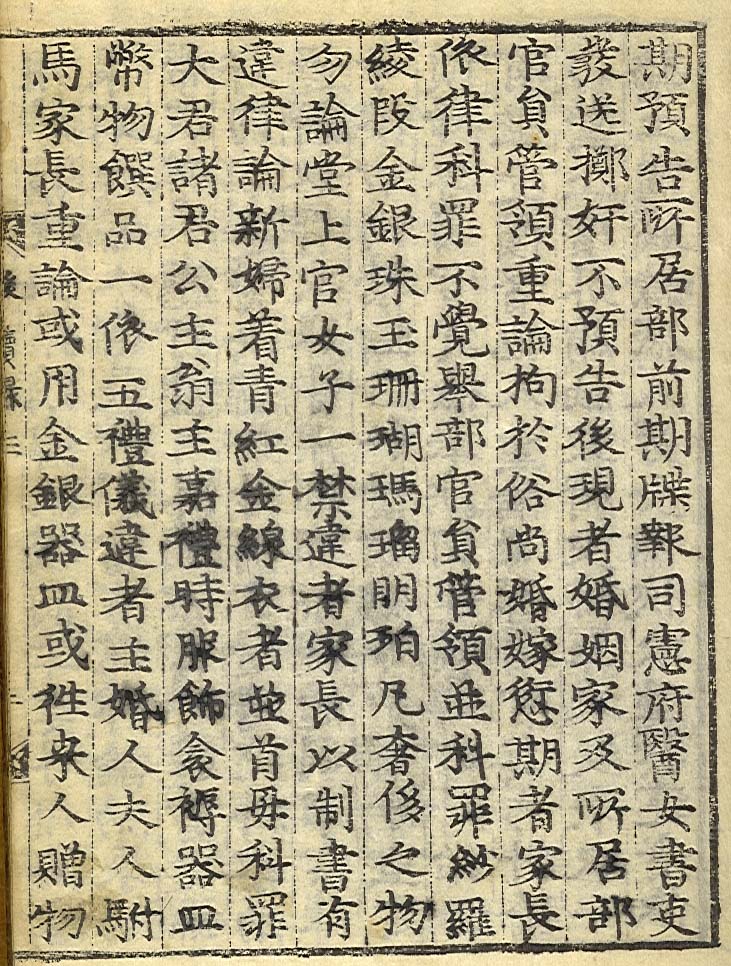 期預告所居部前期牒報司憲府醫女書吏
發送擲奸不預告後現者婚姻家及所居部
官員管領重論拘於俗尚婚嫁愆期者家長
依律科罪不覺舉部官員管領並科罪紗羅
綾段金銀珠玉珊瑚瑪瑙明珀凡奢侈之物
勿論堂上官女子一禁違者家長以制書有
違律論新婦着青紅金線衣者並首母科罪
大君諸君公主翁主嘉禮時服飾衾褥器皿
幣物饌品一依五禮儀違者主婚人夫人駙
馬家長重論或用金銀器皿或徃来人贈物
後續錄三